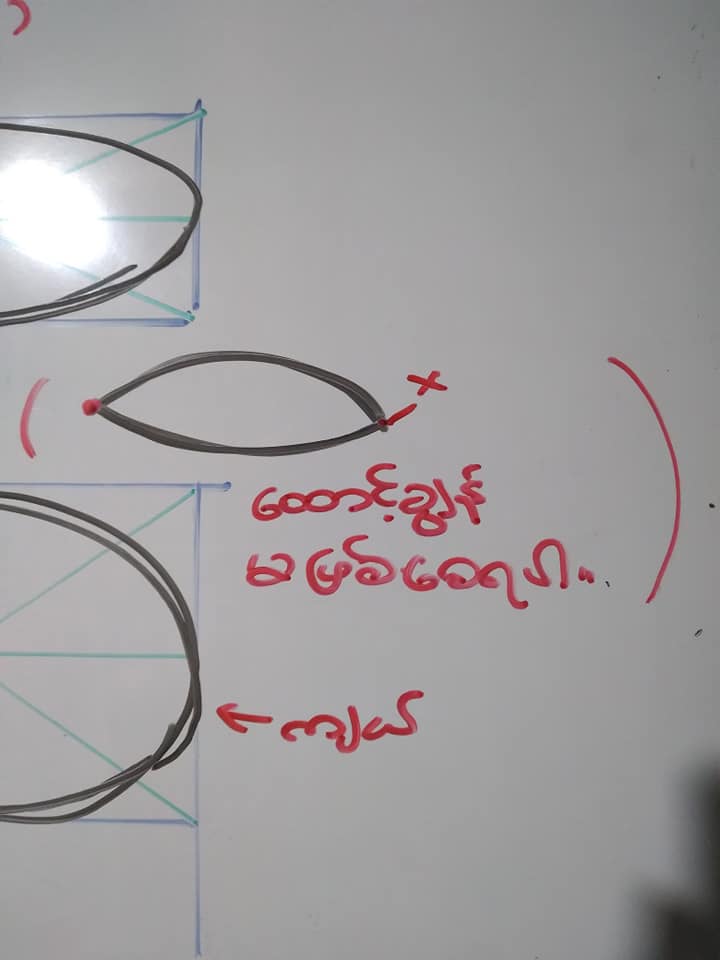 ထောင့်ချွန်
မဖြစ်စေရပါ။
← ကျယ်